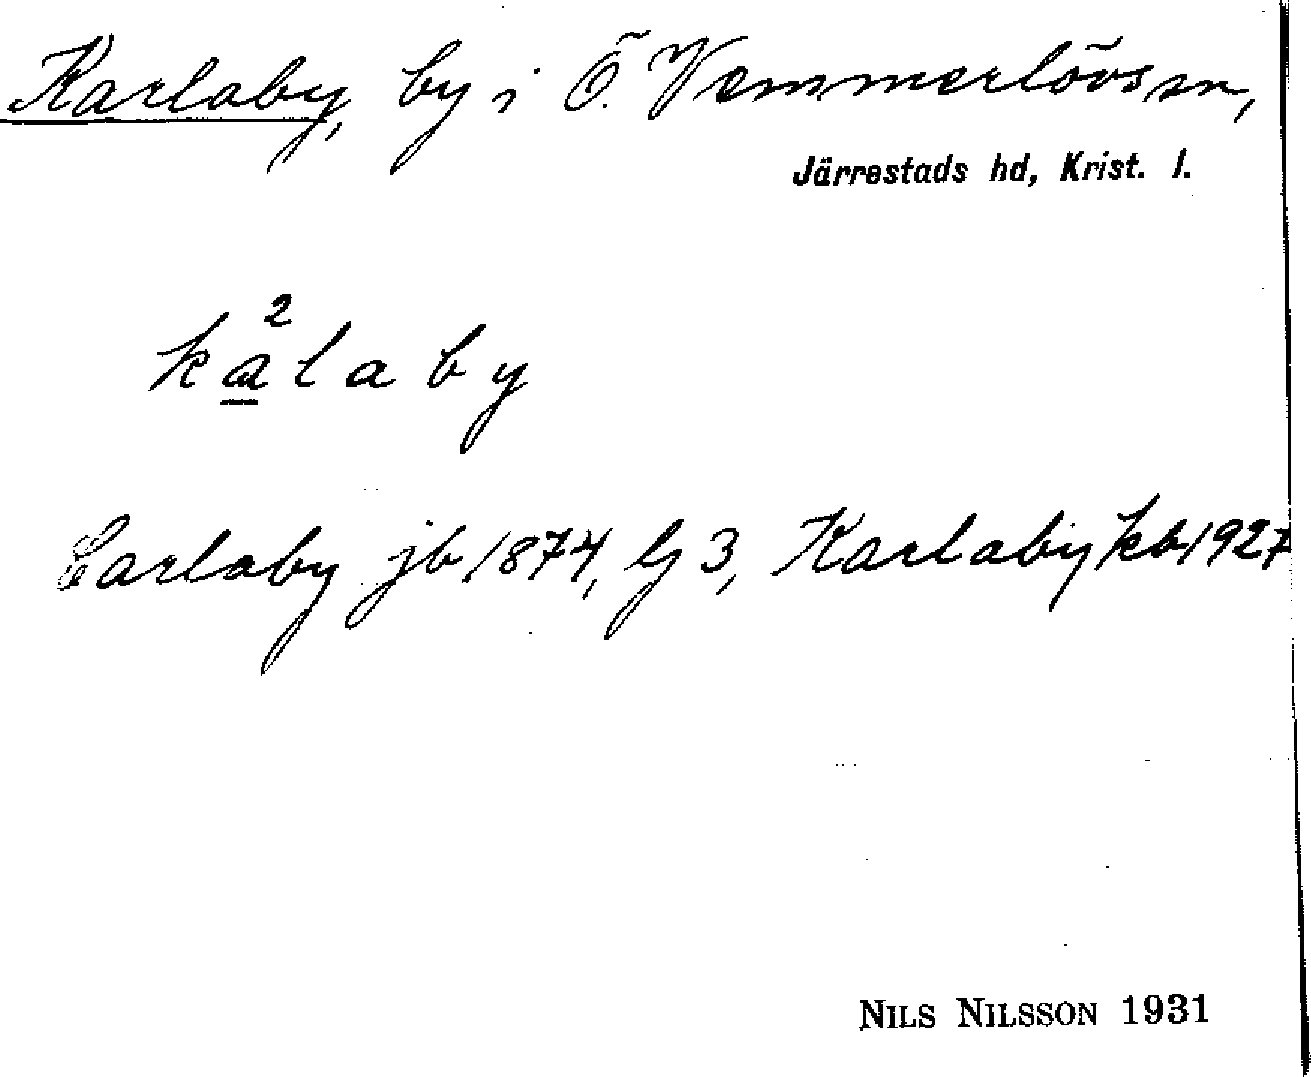 Karlaby, by i Ö. Vemmerlövs sn,
Järrestads hd, Krist. l.
kа̲²laby
Carlaby jb 1874, lj 3, Karlaby kb 1927
NILS NILSSON 1931